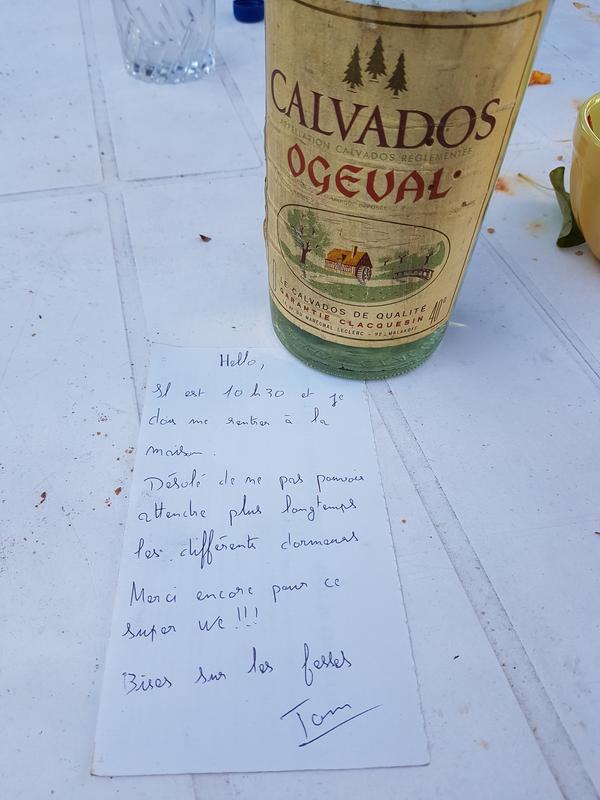 CALVADOS
APPELLATION CALVADOS RÉGLEMENTÉE
OGEVAL
MARQUE DÉPOSÉE
LE CALVADOS DE QUALITÉ
GARANTIE CLACQUESIN 40°
DU MARÉCHAL LECLERC - 92 - MALAKOFF
Hello,
Il est 10 h 30 et je
dois me rentrer à la
maison.
Désolé de ne pas pouvoir
attendre plus longtemps
les différents dormeurs
Merci encore pour ce
super we !!!
Bises sur les fesses
Tom